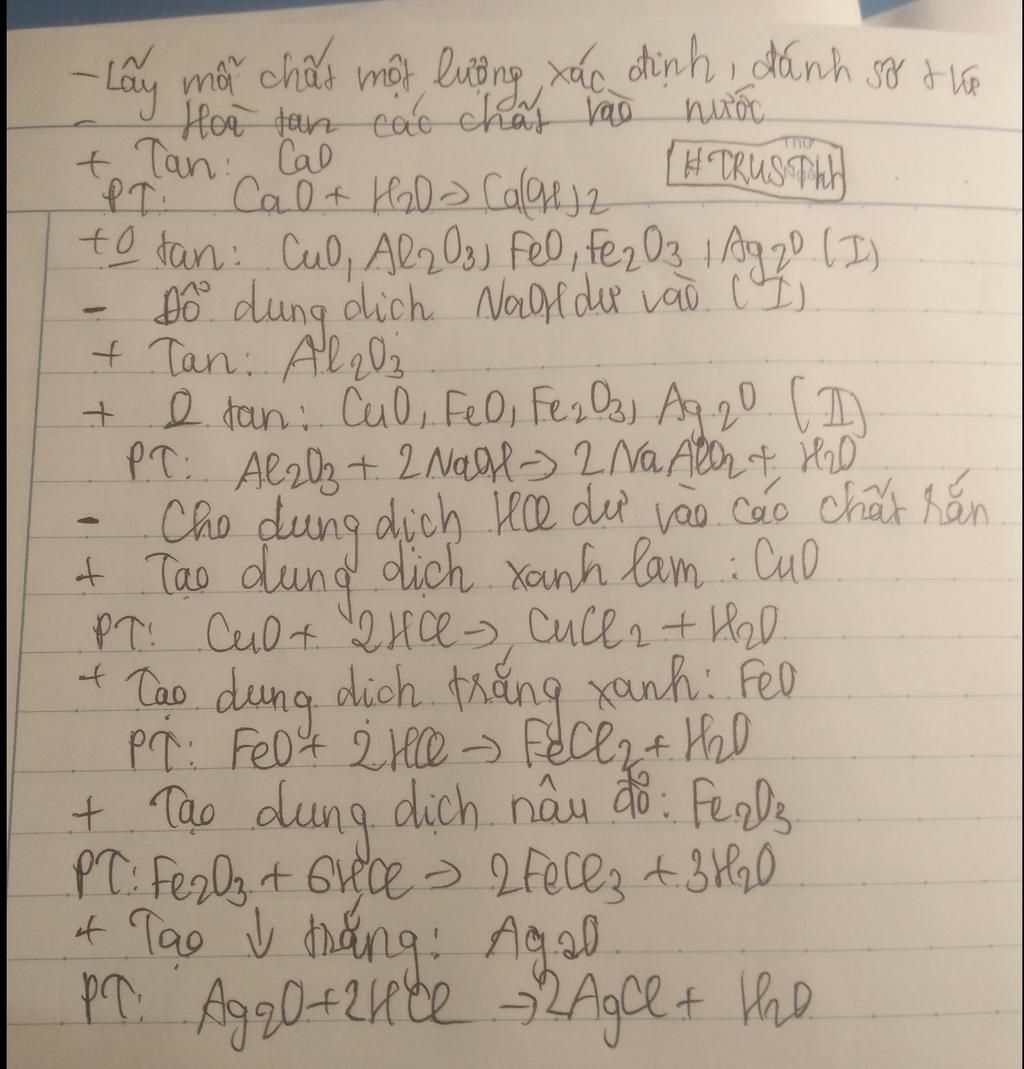 - Lấy mỗi chất một lượng xác định, đánh số thứ
- Hoà tan các chất vào nước
+ Tan: CaO
#TRUSTtht
PT: CaO + H2O → Ca(OH)2
+ O tan: CuO, Al2O3, FeO, Fe2O3, Ag2O (I)
- Đổ dung dịch NaOH dư vào (I)
+ Tan: Al2O3
+ O tan: CuO, FeO, Fe2O3, Ag2O (II)
PT: Al2O3 + 2NaOH → 2NaAlO2 + H2O
- Cho dung dịch HCl dư vào các chất rắn
+ Tạo dung dịch xanh lam: CuO
PT: CuO + 2HCl → CuCl2 + H2O
+ Tạo dung dịch trắng xanh: FeO
PT: FeO + 2HCl → FeCl2 + H2O
+ Tạo dung dịch nâu đỏ: Fe2O3
PT: Fe2O3 + 6HCl → 2FeCl3 + 3H2O
+ Tạo ↓ trắng: Ag2O
PT: Ag2O + 2HCl → 2AgCl + H2O